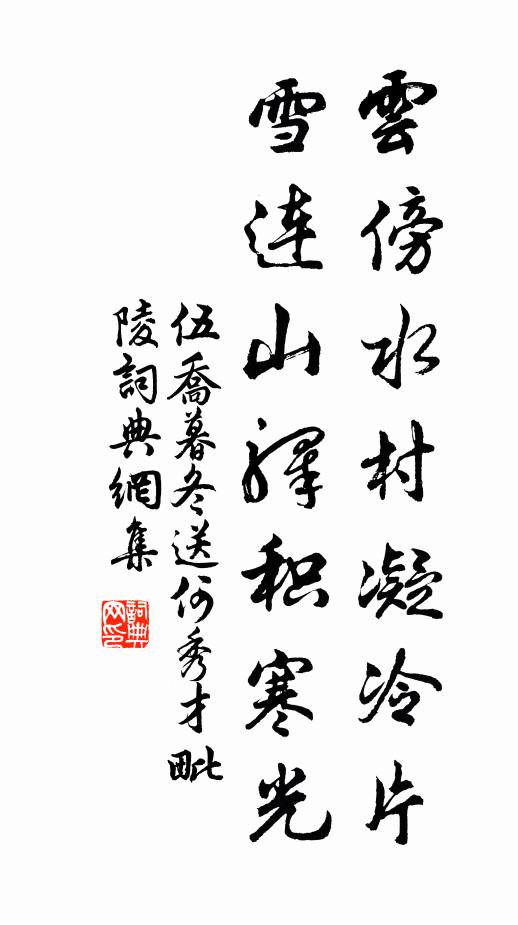 雲傍水村凝冷片
雪連山驛积寒光
伍喬暮冬送何秀才毗
陵詞典網集
詞典
网印